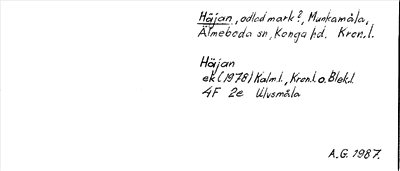 Häjan, odlad mark?, Munkamåla,
Älmeboda sn, Konga hd. Kron.l.
Häjan
ek (1978) Kalm.l., Kron.l. o. Blek.l.
4F 2e Ulvsmåla
A.G. 1987.